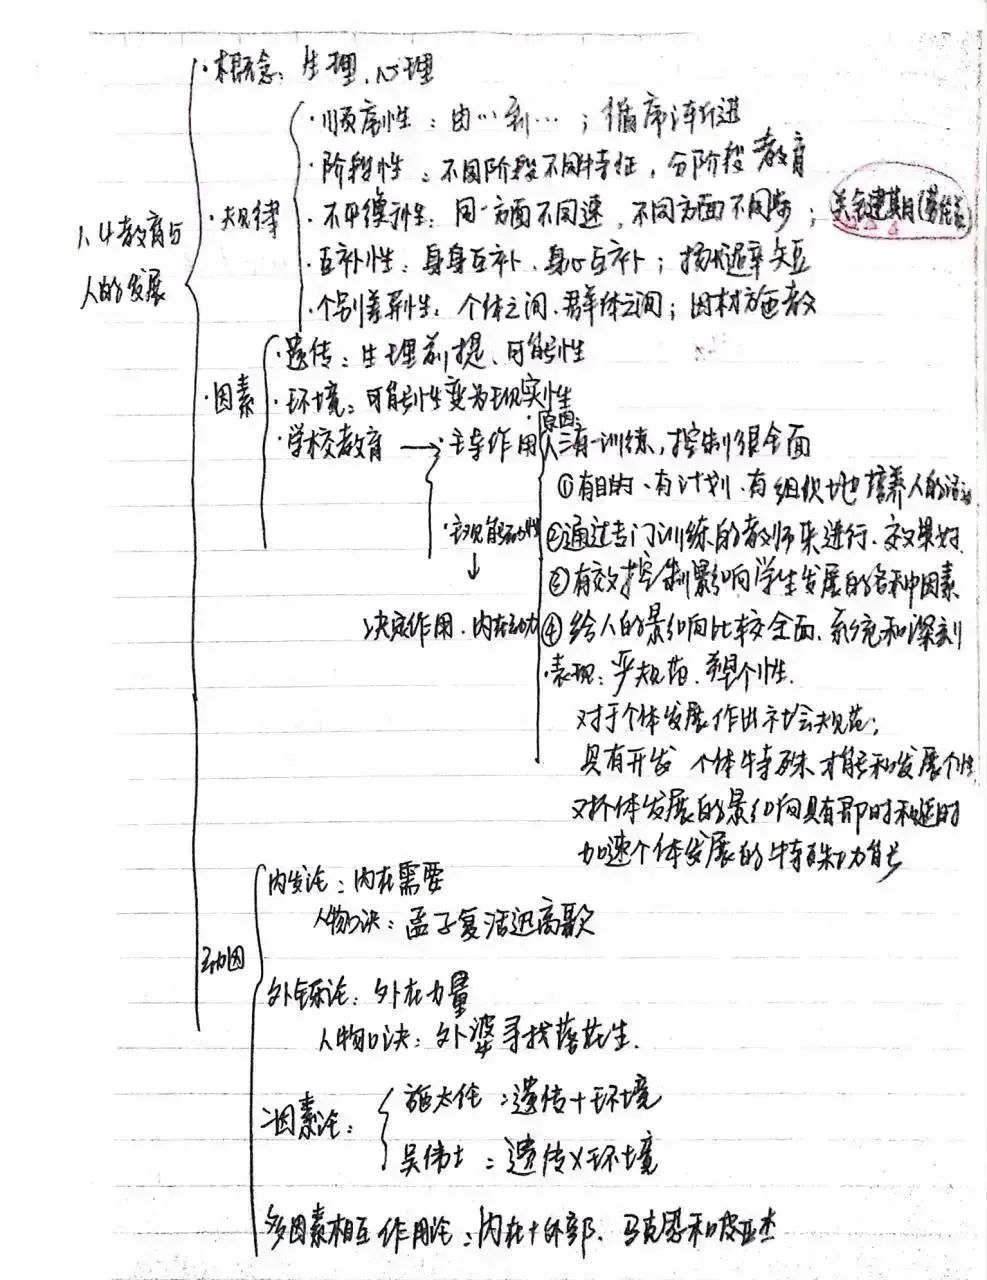 ·概念：生理、心理
·顺序性：由…到…；循序渐进
·阶段性：不同阶段不同特征，分阶段教育
·规律
·不平衡性：同一方面不同速，不同方面不同步；关键期(劳伦兹)
教育与
人的发展
·互补性：身身互补、身心互补；扬长避短
·个别差异性：个体之间、群体之间；因材施教
·因素
·遗传：生理前提、可能性
·环境：可能性变为现实性
·学校教育→·主导作用
·原因：
三有一训练，控制很全面
①有目的、有计划、有组织地培养人的活动
·主观能动性
↓
决定作用、内在动力
②通过专门训练的教师来进行、效果好
③有效控制影响学生发展的各种因素
④给人的影响比较全面、系统和深刻
·表现：严规范、塑个性.
对于个体发展作出社会规范；
具有开发 个体特殊才能和发展个性
对个体发展的影响具有即时和延时
加速个体发展的特殊功能
动因
内发论：内在需要
人物口诀：孟子复活迅高歌
外铄论：外在力量
人物口诀：外婆寻找落花生.
二因素论：
施太伦：遗传+环境
吴伟士：遗传×环境
多因素相互作用论：内在+外部、马克思和皮亚杰